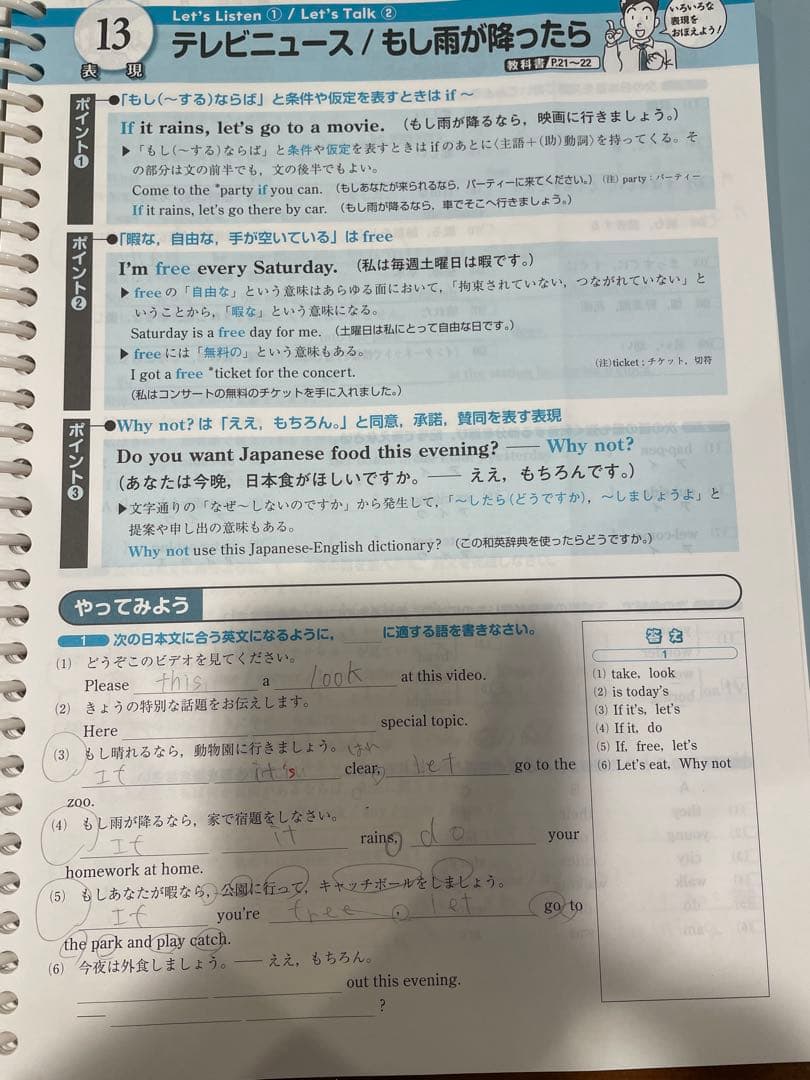 13
表現
Let's Listen ① / Let's Talk ②
テレビニュース/もし雨が降ったら
教科書 P.21〜22
いろいろな
表現を
おぼえよう!
ポイント❶
「もし(〜する)ならば」と条件や仮定を表すときは if 〜
If it rains, let's go to a movie. (もし雨が降るなら,映画に行きましょう。)
▶「もし(〜する)ならば」と条件や仮定を表すときは if のあとに〈主語+(助)動詞〉を持ってくる。そ
の部分は文の前半でも,文の後半でもよい。
Come to the *party if you can. (もしあなたが来られるなら,パーティーに来てください。) (注) party:パーティー
If it rains, let's go there by car. (もし雨が降るなら,車でそこへ行きましょう。)
ポイント❷
「暇な,自由な,手が空いている」は free
I'm free every Saturday. (私は毎週土曜日は暇です。)
▶ free の「自由な」という意味はあらゆる面において,「拘束されていない,つながれていない」と
いうことから,「暇な」という意味になる。
Saturday is a free day for me. (土曜日は私にとって自由な日です。)
▶ free には「無料の」という意味もある。
I got a free *ticket for the concert. (注)ticket:チケット,切符
(私はコンサートの無料のチケットを手に入れました。)
ポイント❸
Why not? は「ええ,もちろん。」と同意,承諾,賛同を表す表現
Do you want Japanese food this evening? ―― Why not?
(あなたは今晩,日本食がほしいですか。―― ええ,もちろんです。)
▶文字通りの「なぜ〜しないのですか」から発生して,「〜したら(どうですか),〜しましょうよ」と
提案や申し出の意味もある。
Why not use this Japanese-English dictionary? (この和英辞典を使ったらどうですか。)
やってみよう
1 次の日本文に合う英文になるように,____に適する語を書きなさい。
(1) どうぞこのビデオを見てください。
Please this a look at this video.
(2) きょうの特別な話題をお伝えします。
Here ____ special topic.
(3) もし晴れるなら,動物園に行きましょう。
If it's clear, let go to the
zoo.
(4) もし雨が降るなら,家で宿題をしなさい。
If it rains, do your
homework at home.
(5) もしあなたが暇なら,公園に行って,キャッチボールをしましょう。
If you're free, let go to
the park and play catch.
(6) 今夜は外食しましょう。―― ええ,もちろん。
____ ____ out this evening.
―― ____ ____ ?
答え
1
(1) take, look
(2) is today's
(3) If it's, let's
(4) If it, do
(5) If, free, let's
(6) Let's eat, Why not